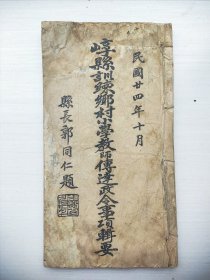 民國廿四年十月
崞縣訓練鄉村小學教師傳達政令事項輯要
縣長郭同仁題